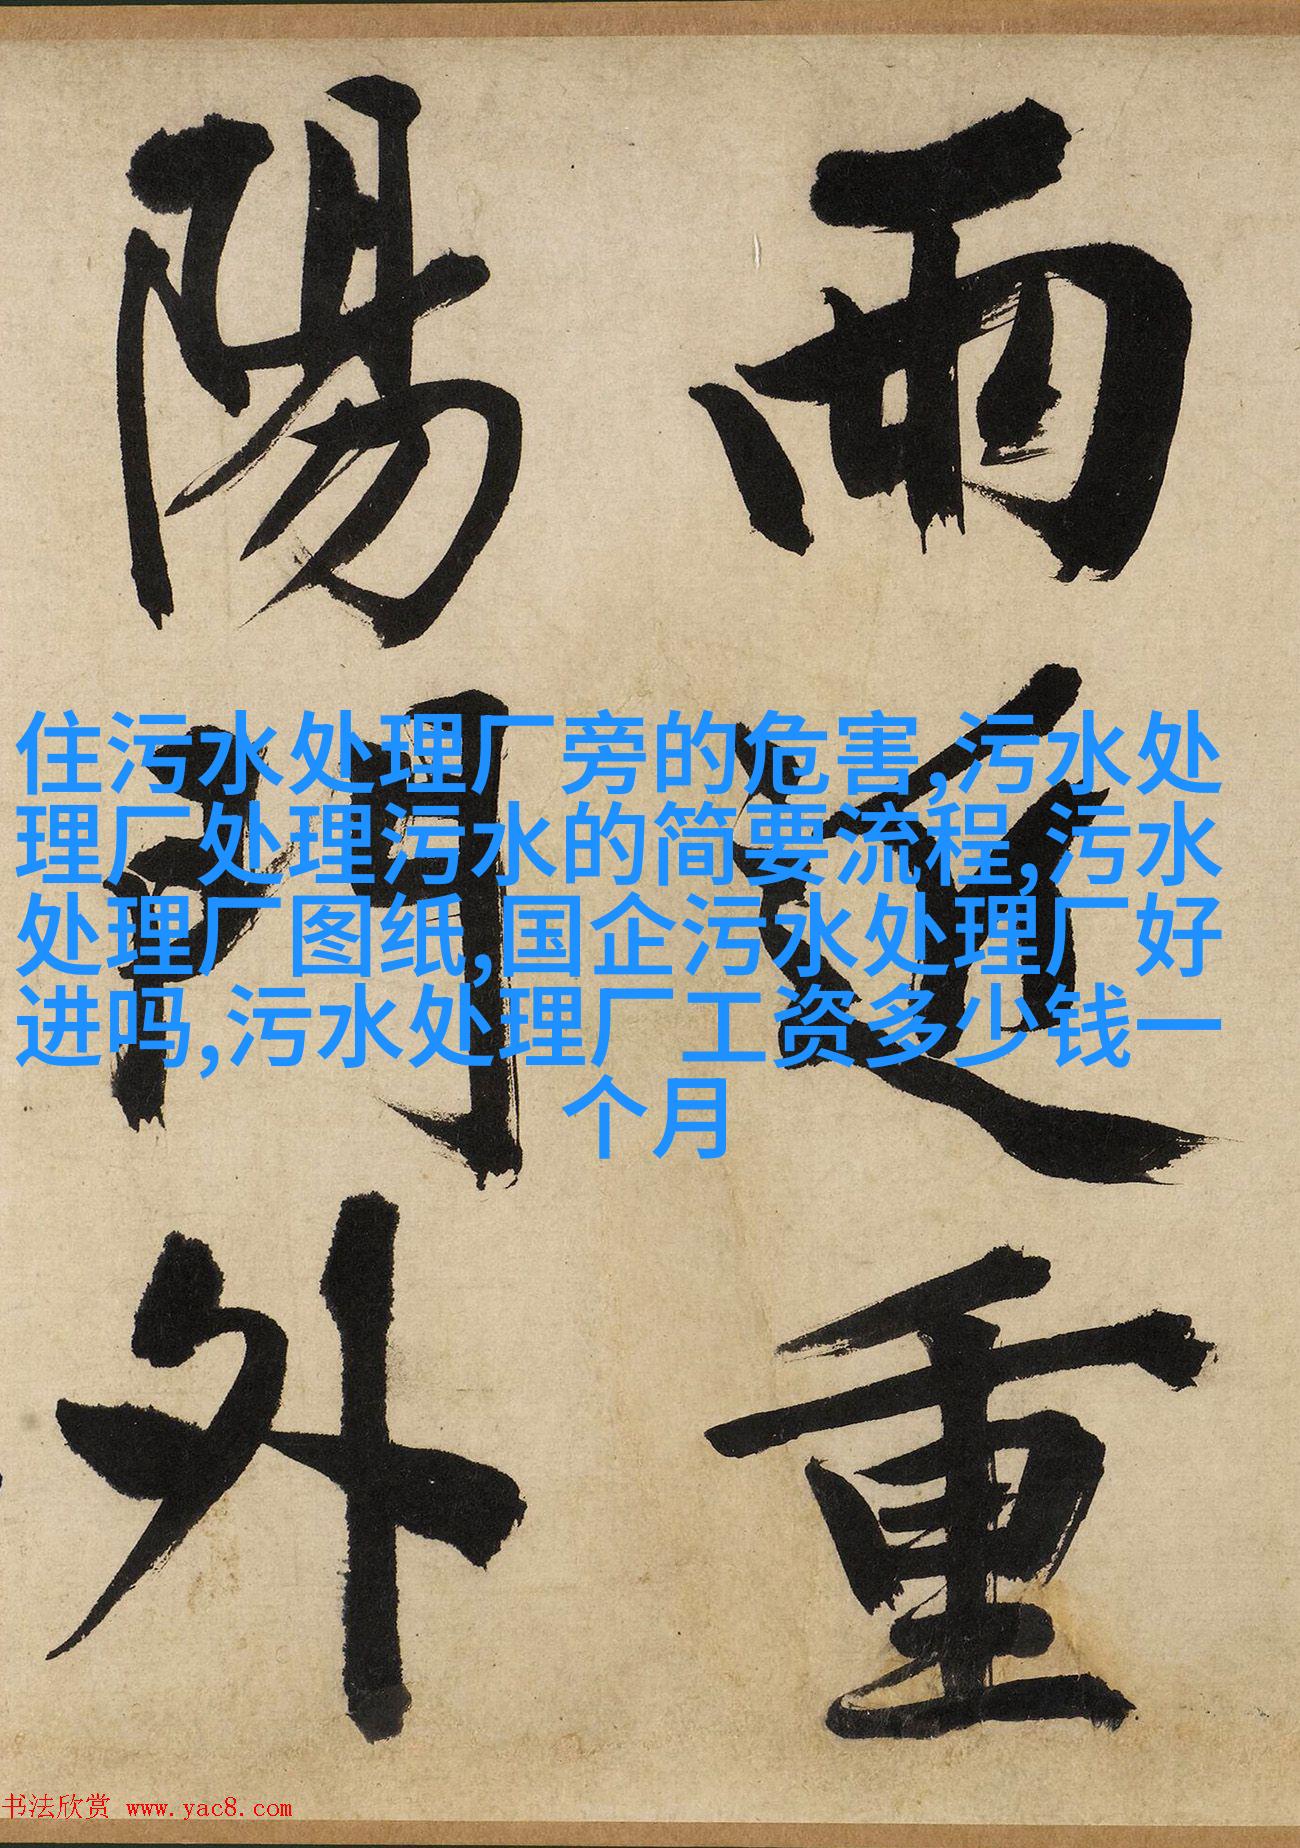 雨近重
陽門外
住污水处理厂旁的危害,污水处
理厂处理污水的简要流程,污水
处理厂图纸,国企污水处理厂好
进吗,污水处理厂工资多少钱一
个月
书法欣赏 www.yac8.com